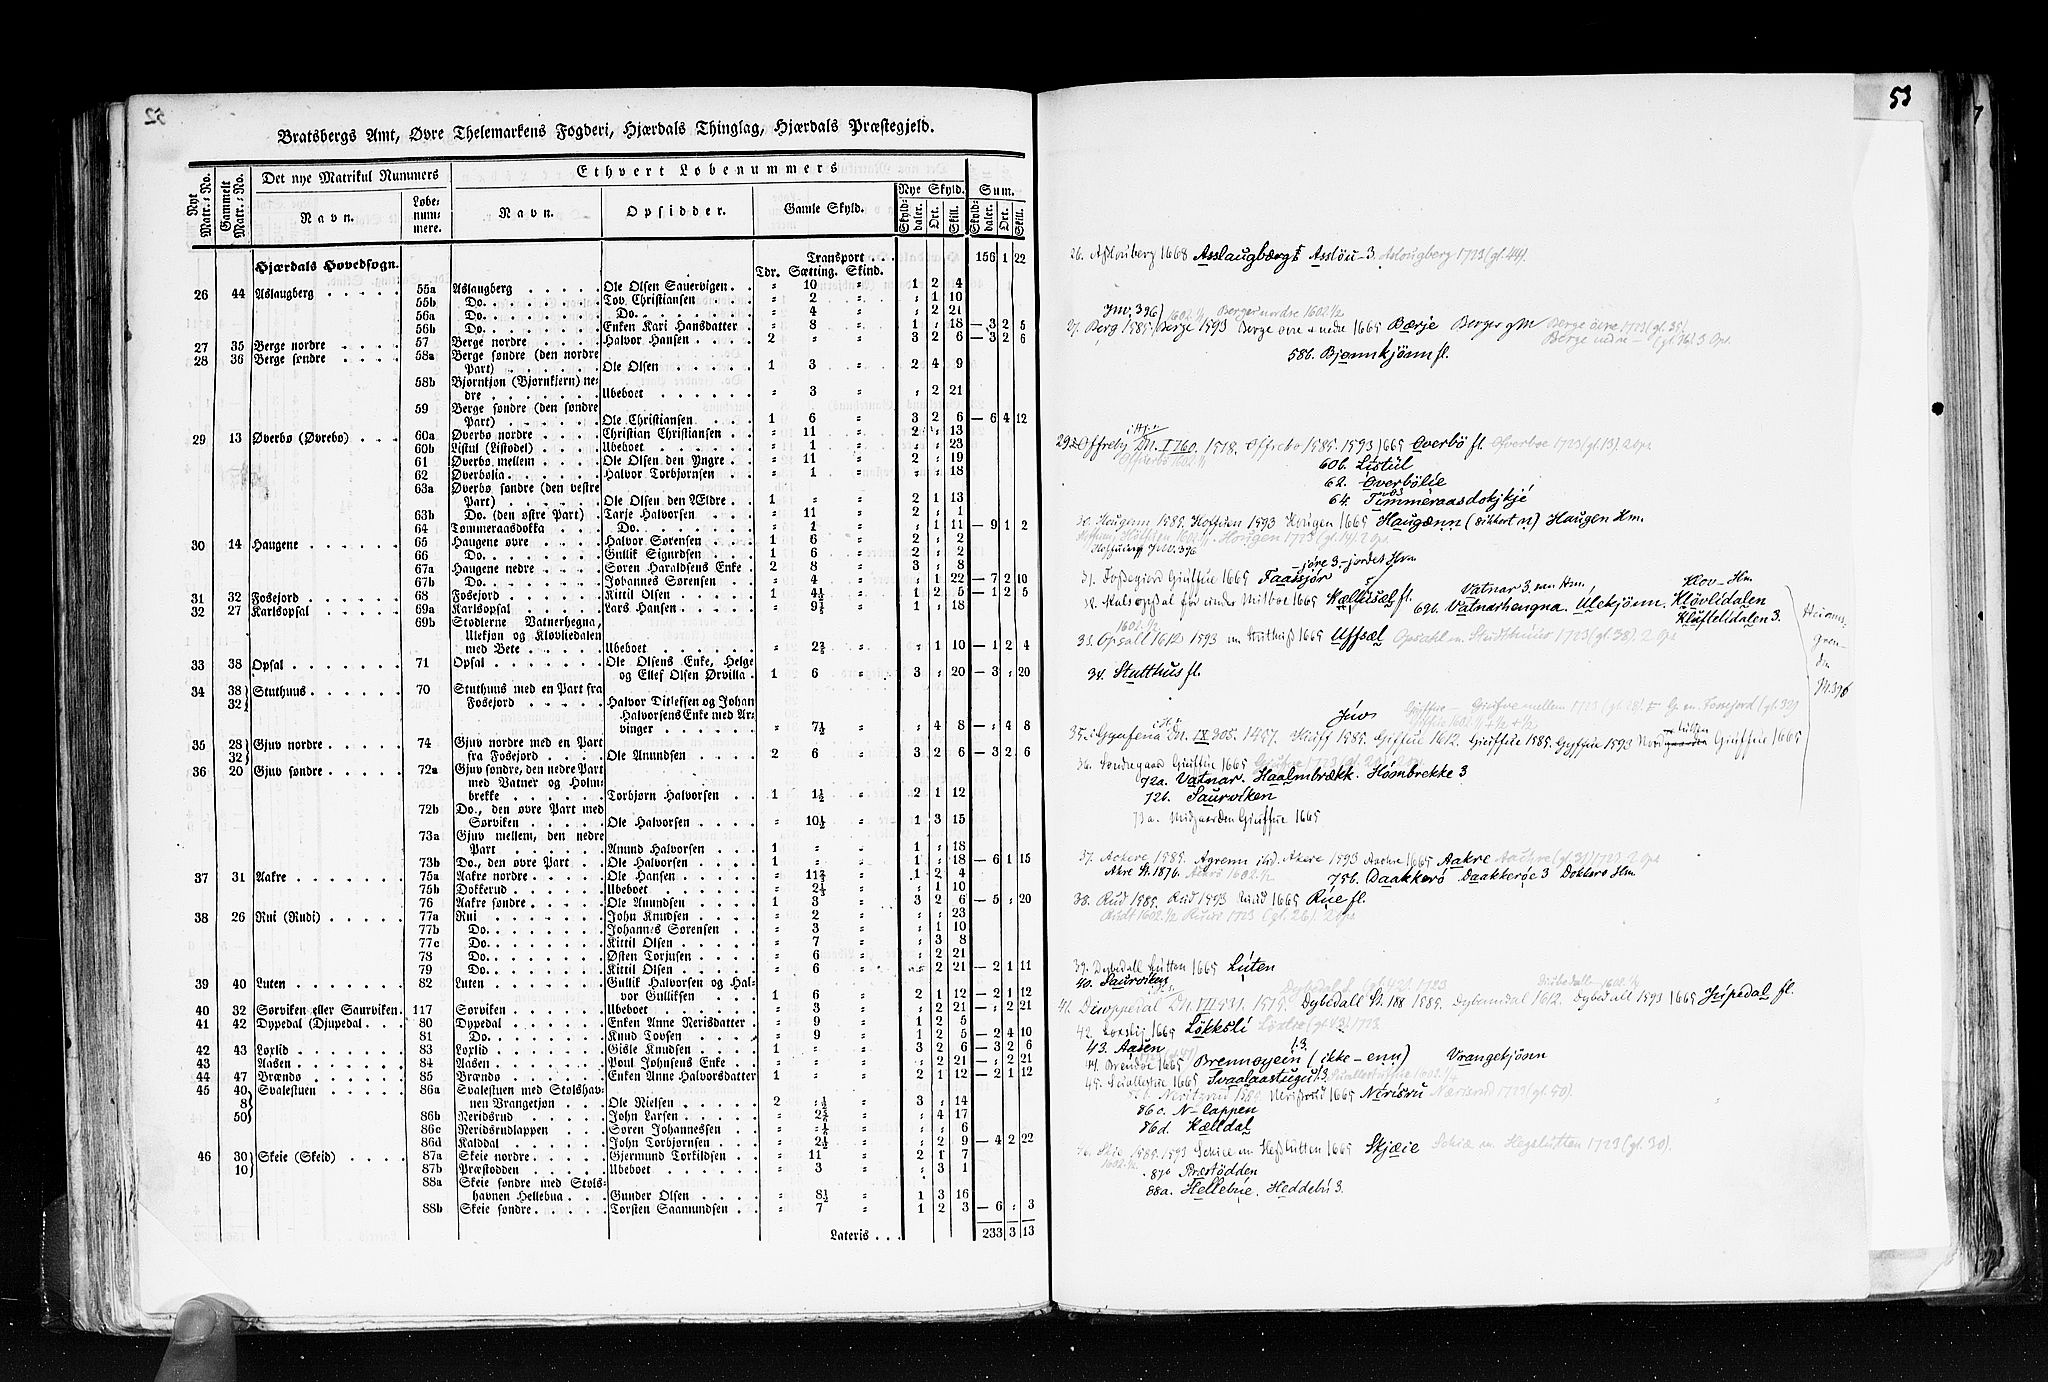 52
Bratsbergs Amt, Øvre Thelemarkens Fogderi, Hjærdals Thinglag, Hjærdals Præstegjeld.
Nye Matr.-No. Gammelt Matr.-No. Det nye Matrikul Nummers Ethvert Løbenummers
Navn. Løbe-nummere. Navn. Opsidder. Gamle Skyld. Nye Skyld. Sum.
Skylddaler. Ort. Skill. Skylddaler. Ort. Skill.
Hjærdals Hovedsogn. Transport . . 156 1 22
Tdr. Sætting. Skind.
26 44 Aslaugberg 55a Aslaugberg Ole Olsen Sauervigen " 10 " 1 2 4
55b Do. Tov Christiansen " 2 " " 1 10
56a Do. Do. " 4 " " 2 21
56b Do. Enken Kari Hansdatter " 8 " 1 " 18 — 3 2 5
27 35 Berge nordre 57 Berge nordre Halvor Hansen 2 " " 3 2 6 — 3 2 6
28 36 Berge søndre 58a Berge søndre (den nordre
Part) Ole Olsen 1 3 " 2 4 9
58b Bjørntjøn (Bjørnkjern) ne-
dre Ubeboet " 3 " " 2 21
59 Berge søndre (den søndre
Part) Ole Christiansen 1 6 " 3 2 6 — 6 4 12
29 13 Øverbø (Øvrebø) 60a Øverbø nordre Christian Christiansen " 11 " 2 " 13
60b Listul (Listødel) Ubeboet " 1 " " " 23
61 Øverbø mellem Ole Olsen den Yngre " 11 " 2 " 19
62 Øverbølia Halvor Torbjørnsen " 1 " " " 18
63a Øverbø søndre (den vestre
Part) Ole Olsen den Ældre 1 " " 2 1 13
63b Do. (den østre Part) Tarje Halvorsen " 11 " 2 " 1
64 Tømmeraasdokka Do. " 1 " " 1 11 — 9 1 2
30 14 Haugene 65 Haugene øvre Halvor Sørensen 1 6 " 2 " 2
66 Do. Gullik Sigurdsen 1 6 " 2 " 2
67a Haugene nedre Søren Haraldsens Enke 2 8 " 3 " 8
67b Do. Johannes Sørensen " 4 " " 1 22 — 7 2 10
31 32 Fosejord 68 Fosejord Kittil Olsen 1 4½ " 1 2 5 — 1 2 5
32 27 Karlsopsal 69a Karlsopsal Lars Hansen " 9½ " 1 " 18
69b Stødlerne Vatnerhegna,
Ulekjøn og Kløvliedalen
med Bete Ubeboet " 2⅔ " " 1 10 — 1 2 4
33 38 Opsal 71 Opsal Ole Olsens Enke, Helge
og Ellef Olsen Ørvilla 1 6 " 3 " 20 — 3 " 20
34 38} Stuthuus 70 Stuthuus med en Part fra
32} Fosejord Halvor Ditlefsen og Johan
Halvorsens Enke med Ar-
vinger " 7½ " " 4 8 — " 4 8
35 28} Gjuv nordre 74 Gjuv nordre med en Part
32} fra Fosejord Ole Anundsen 2 6 " 3 2 6 — 3 2 6
36 20 Gjuv søndre 72a Gjuv søndre, den nedre Part
med Vatner og Holm-
brekke Torbjørn Halvorsen 1 1½ " 2 1 12
72b Do., den øvre Part med
Sørviken Ole Halvorsen " 10½ " 1 3 15
73a Gjuv mellem, den nedre
Part Anund Halvorsen 1 " " 1 " 18
73b Do., den øvre Part Ole Halvorsen 1 " " 1 " 18 — 6 1 15
37 31 Aakre 75a Aakre nordre Ole Hansen " 11⅔ " 1 2 4
75b Dokkerud Ubeboet " 2⅓ " " 1 10
76 Aakre søndre Ole Anundsen 1 3 " 3 2 6 — 5 " 20
38 26 Rui (Rudi) 77a Rui John Knudsen " 2 " " " 23
77b Do. Johannes Sørensen " 3 " " 1 10
77c Do. Kittil Olsen " 7 " " 3 8
78 Do. Østen Torjusen " 6 " " 2 21
79 Do. Kittil Olsen " 6 " " 2 21 — 2 1 11
39 40 Luten 82 Luten Gullik Halvorsen og Hal-
vor Gulliksen 1 6 " 2 1 12 — 2 1 12
40 32 Sørviken eller Saurviken 117 Sørviken Ubeboet " 3 " " 2 21 — " 2 21
41 42 Dypedal (Djupedal 80 Dypedal Enken Anne Nerisdatter " 9 " 1 2 5
81 Do. Knud Tovsen " 9 " 1 2 5 — 2 4 10
42 43 Loxlid 83 Loxlid Gisle Knudsen 1 " " 3 2 6 — 3 2 6
43 Aasen 84 Aasen Poul Johnsens Enke " " " " 2 21 — " 2 21
44 47 Brændø 85 Brændø Enken Anne Halvorsdatter 1 " " 2 1 12 — 2 1 12
45 40} Svalestuen 86a Svalestuen med Stølshav-
8} nen Vrangetjøn Ole Nielsen 2 " 3 " 14
50} 86b Neridsrud John Larsen " " 4 17
86c Neridsrudlappen Søren Johannessen " " " 6
86d Kalddal John Torbjørnsen " 2½ " " 2 9 — 4 2 22
46 30} Skeie (Skeid) 87a Skeie nordre Gjermund Torkildsen " 11 " 2 1 7
10} 87b Præstodden Ubeboet " 3 " " 3 1
88a Skeie søndre med Støls-
havnen Hellebua Gunder Olsen " 8½ " 1 3 16
88b Skeie søndre Torsten Saamundsen " 7 " 1 2 3 — 6 " 3
Lateris . . . 233 3 13
53
26. Aslouberg 1668 Asslaugbærgˈ Asslöu-3 Aslougberg 1723 (gl. 44).
JN. 396) 1602 1/1 Berger nordre 1602 1/2
27. Berg 1585. Berge 1593 Berge øvre + nedre 1665 Bærje Berges gM Berge øvre 1723 (gl. 35)
Berge nedre — (gl. 36) 3 Ops.
58b. Bjønnkjönn fl.
29. Offreby DN. I 760. 1518. Offrebo 1585. 1593 1665 Överbö fl. Øfverboe 1723 (gl. 13). 2 Ops
60b. Listúl
62. Överbölíe
64. Timmeraasdokjkjé
30. Haugenn 1585. Hoffuen 1593 Hougen 1665 Haugænn (sikkert n) Haugen Hm.
Hougen 1723 (gl. 14) 2 Ops
-jöre 3 -jordet Hm
31. Fossegiord Giuffue 1665 Faassjör
1665 Kællúsæl fl. 69b. Vatnarhengna. Ulekjönn. Klövlidalen
Vatnar 3. Hm. Klov- Hm
Kluftelidalen 3.
1602 1/2
33. Opsall 1612 1593 1665 Uffsæl Opsahl Studthuus 1723 (gl. 38). 2 Ops
34. Stutthus fl.
Hierams-
gren-
din
JN. 396
Júv
Giufve mellem 1723 (gl. 28) Fossejord (gl. 32)
35. i Gyufena DN. IX 305. 1457. Kiuff 1585. Giffue 1612. Giuffue 1585. Gyffue 1593 Giuffue 1665
36. Søndregaard Giuffue 1665
72a. Vatnar. Haalmbrækk. Hömbrekke 3
72b. Saurviken
73a. Midgaarden Giuffue 1665
37. Ackere 1585. Agrenn ibd. Akere 1593 Aachre 1665 Aakre Aachre (gl. 31) 1723. 2 Ops
Akre N. 1876. 1602 1/2 75b. Daakkerö Daakkeröe 3 Dokkerø Hm
38. Rud 1585. Rud 1593 Ruud 1665 Rúe fl.
Rudt 1602 1/2 Ruue 1723 (gl. 26). 2 Ops
39. Dybedall Lutten 1665 Lúten
40. Saurvíken
Dybedal (gl. 42) 1723 Diubedall 1602 1/2
41. Diwppedal DN. III 531. 1515. Dybedall N. 188 1585. 1612. Dybedall 1593 1665 Júpedal fl.
42. Loxslij 1665 Lökkslí Loxlie (gl. 43) 1723.
43. Aasen
44. Brendøe 1665 Brennöyein (ikke -enn) Vrangetjönn
45. Suallestue 1665 Svaalaastugu 13
1665 Nerisrú Nærisrud 1723 (gl. 50).
86c. N-lappen
86d. Kælldal
46. Skie 1585. 1593 Schiee Hegslutten 1665 Skjæie Schiæ Hegslutten 1723 (gl. 30).
1602 1/2
87b Præstödden
88a. Hellebúe, Heddebú 3.